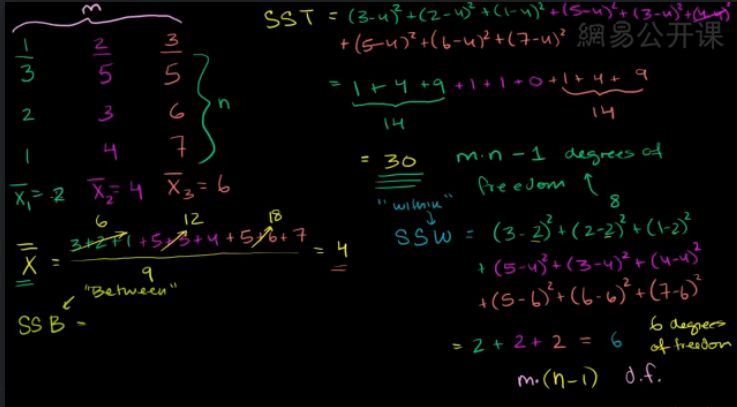 m
1 2 3
3 5 5
2 3 6
1 4 7
n
X̄₁ = 2 X̄₂ = 4 X̄₃ = 6
6 12 18
X̿ = (3+2+1 +5+3+4 +5+6+7) / 9 = 4
"Between"
SSB =
SST = (3-4)² + (2-4)² + (1-4)² + (5-4)² + (3-4)² + (4-4)²
+ (5-4)² + (6-4)² + (7-4)²
網易公开课
= 1 + 4 + 9 + 1 + 1 + 0 + 1 + 4 + 9
14 14
= 30 m·n - 1 degrees of
freedom
8
"within"
SSW = (3-2)² + (2-2)² + (1-2)²
+ (5-4)² + (3-4)² + (4-4)²
+ (5-6)² + (6-6)² + (7-6)²
= 2 + 2 + 2 = 6 6 degrees
of freedom
m·(n-1) d.f.